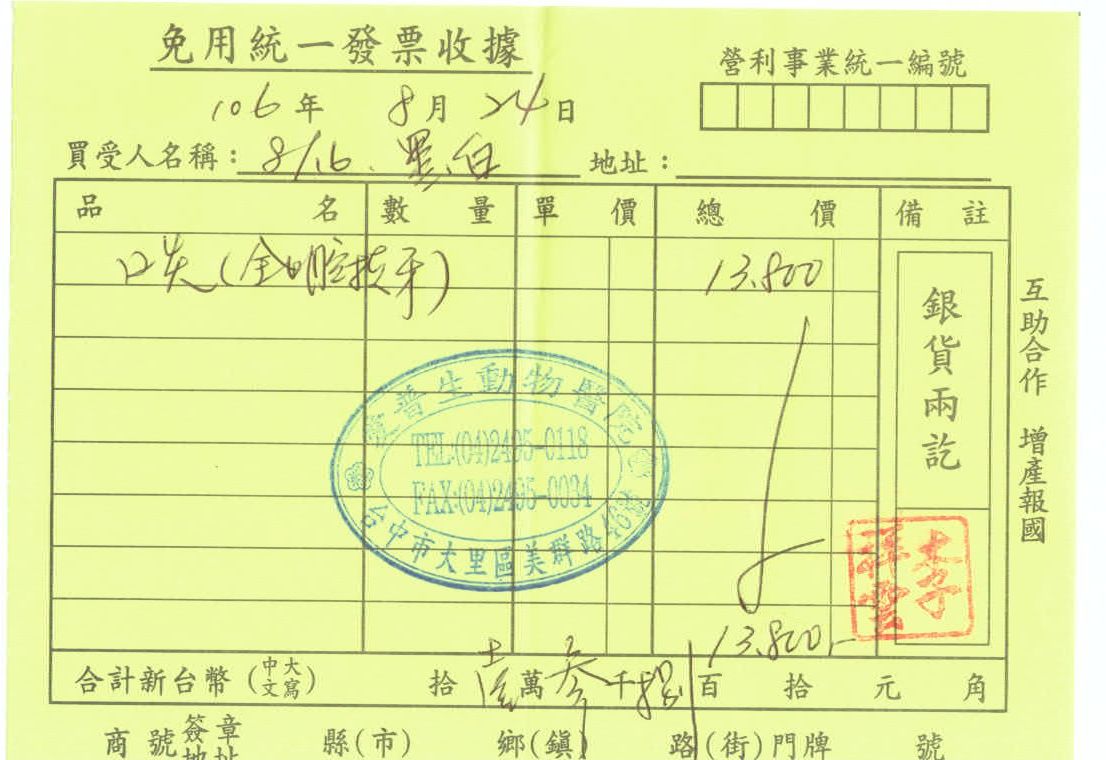 免用統一發票收據
營利事業統一編號
106年 8月 24日
買受人名稱：8/16. 墨白 地址：
品名 數量 單價 總價 備註
口炎(全口腔拔牙) 13,800
銀貨兩訖
互助合作 增產報國
普生動物醫院
TEL:(04)2495-0118
FAX:(04)2495-0034
台中市大里區美群路
李祥雲
13,800.-
合計新台幣(中文大寫) 拾 壹萬 參千 捌百 拾 元 角
商號簽章地址 縣(市) 鄉(鎮) 路(街)門牌 號